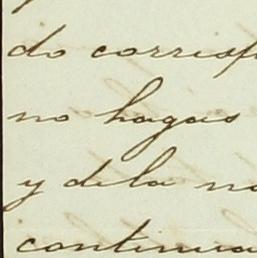 do corresp
no hagas
y dela no
continua